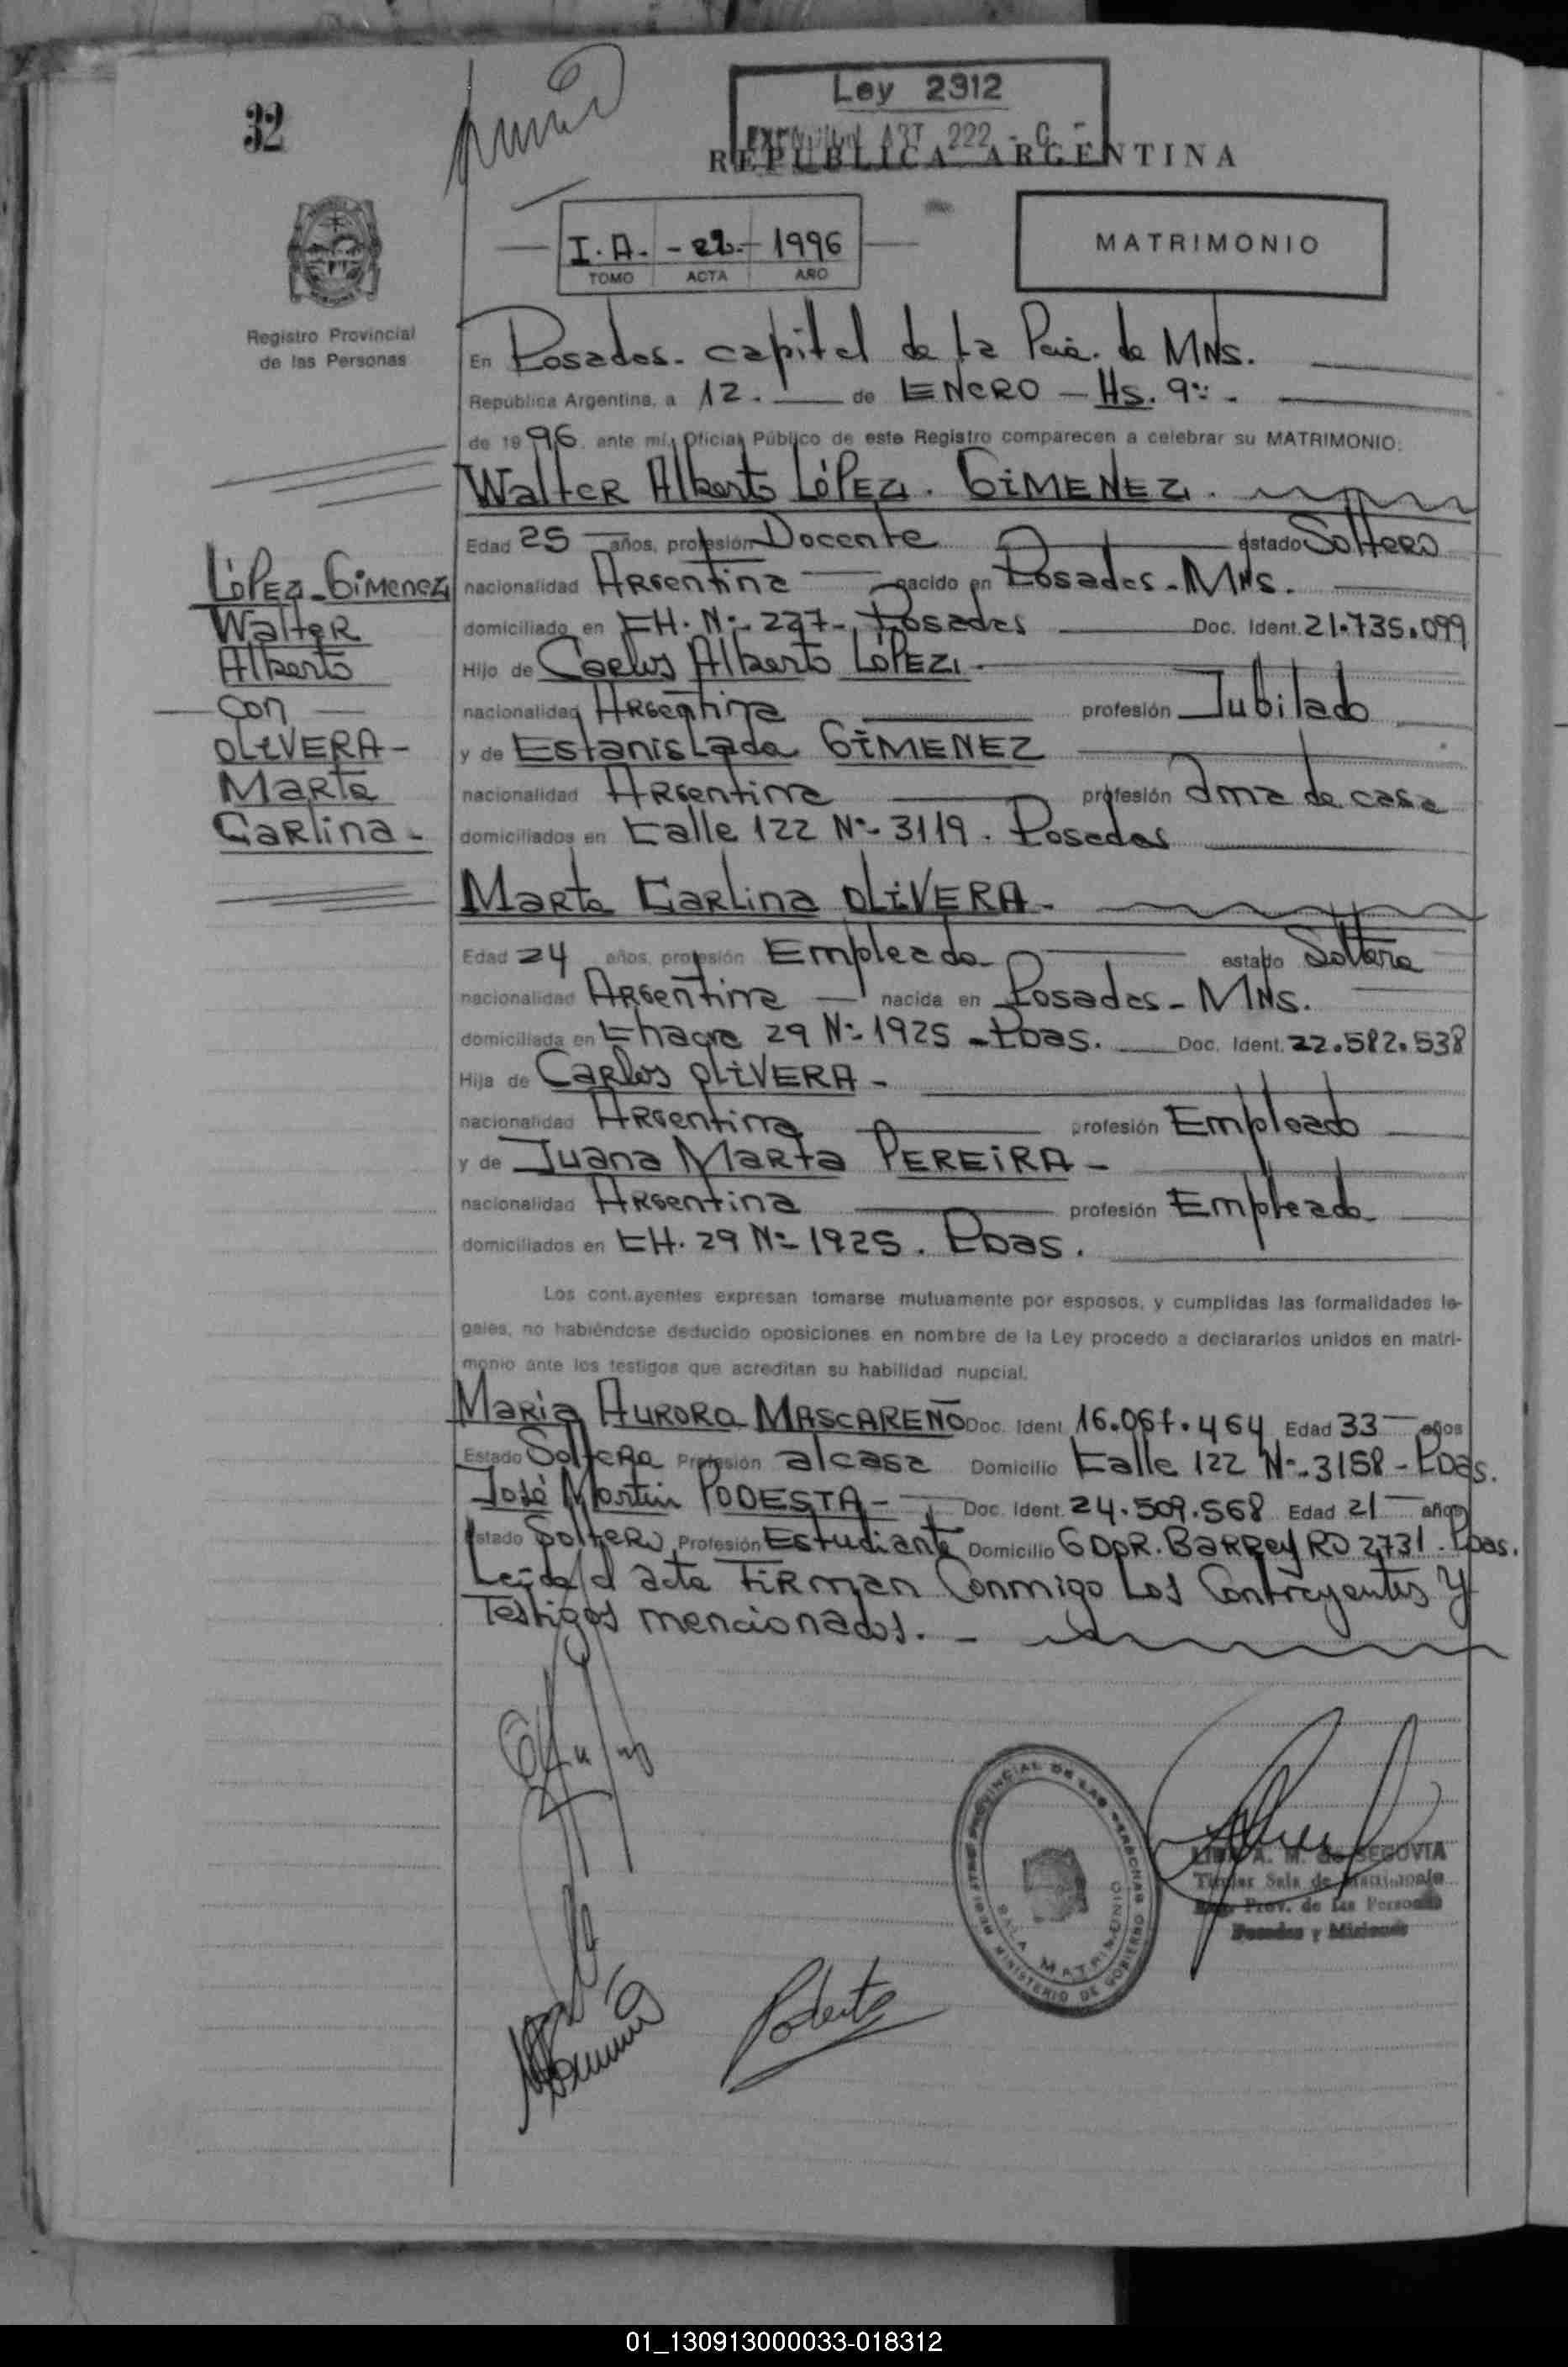 32
Ley 2312
ART 222 - C -
REPUBLICA ARGENTINA
I. A. - 22 - 1996
TOMO ACTA AÑO
MATRIMONIO
Registro Provincial
de las Personas
En Posadas - capital de la Pcia. de MNS.
República Argentina, a 12. de ENERO - Hs. 9
de 1996. ante mí, Oficial Público de este Registro comparecen a celebrar su MATRIMONIO:
Walter Alberto LÓPEZ. GIMENEZ.
Edad 25 años, profesión Docente estado Soltero
nacionalidad Argentina nacido en Posadas - MNS.
domiciliado en CH. Nº 227 - Posadas Doc. Ident. 21.735.099
Hijo de Carlos Alberto LÓPEZ.
nacionalidad Argentina profesión Jubilado
y de Estanislada GIMENEZ
nacionalidad Argentina profesión Ama de casa
domiciliados en Calle 122 Nº 3119. Posadas
Marta Carlina OLIVERA -
Edad 24 años, profesión Empleada estado Soltera
nacionalidad Argentina nacida en Posadas - MNS.
domiciliada en Chacra 29 Nº 1925 - Pdas. Doc. Ident. 22.582.538
Hija de Carlos OLIVERA -
nacionalidad Argentina profesión Empleado
y de Juana Marta PEREIRA -
nacionalidad Argentina profesión Empleada
domiciliados en CH. 29 Nº 1925. Pdas.
LÓPEZ - Gimenez
Walter
Alberto
con
OLIVERA -
Marta
Carlina -
Los contrayentes expresan tomarse mutuamente por esposos, y cumplidas las formalidades le-
gales, no habiéndose deducido oposiciones en nombre de la Ley procedo a declararlos unidos en matri-
monio ante los testigos que acreditan su habilidad nupcial.
Maria Aurora MASCAREÑO Doc. Ident. 16.067.464 Edad 33 años
Estado Soltera Profesión alcasa Domicilio Calle 122 Nº 3158 - Pdas.
José Martin PODESTA - Doc. Ident. 24.509.568 Edad 21 años
Estado Soltero Profesión Estudiante Domicilio GDOR. BARREYRO 2731. Pdas.
Leída el acta Firman Conmigo Los Contrayentes y
Testigos mencionados. -
REGISTRO PROVINCIAL DE LAS PERSONAS
SALA MATRIMONIO
MINISTERIO DE GOBIERNO
A. M. de SEGOVIA
Titular Sala de Matrimonio
Reg. Prov. de las Personas
Posadas y Misiones
01_130913000033-018312